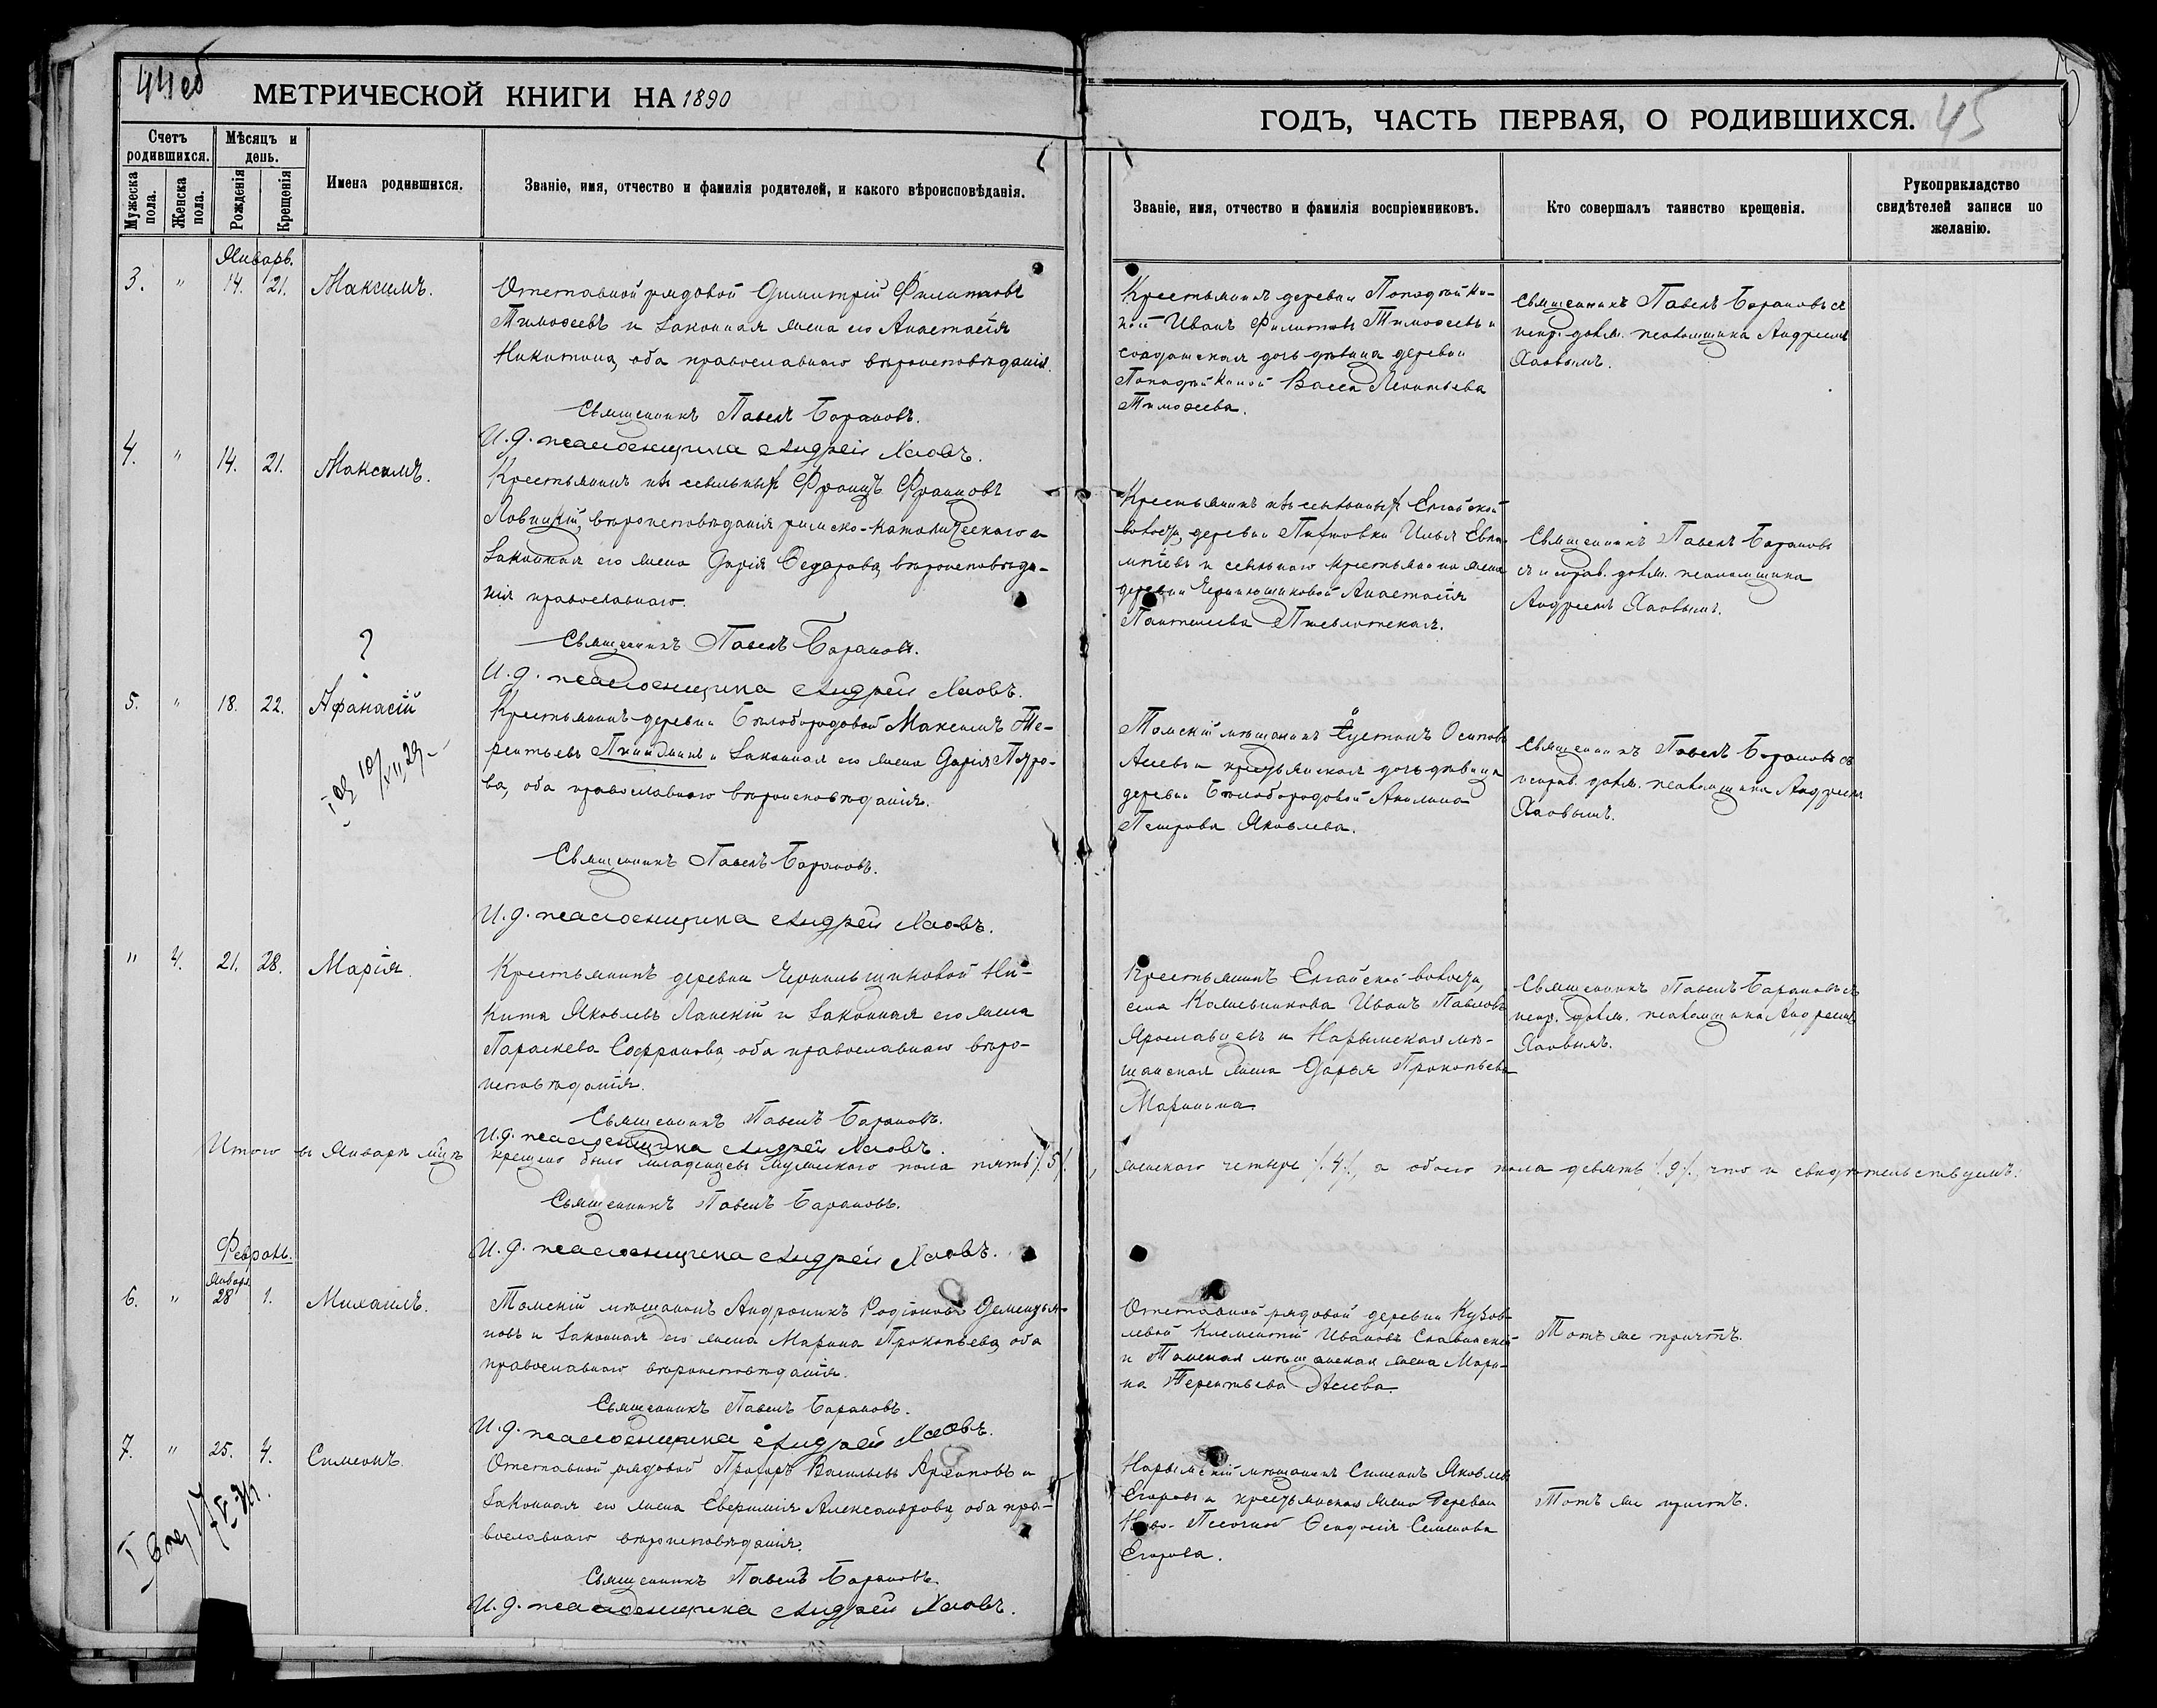 44об
МЕТРИЧЕСКОЙ КНИГИ НА 1890
ГОДЪ, ЧАСТЬ ПЕРВАЯ, О РОДИВШИХСЯ.
45
Счетъ родившихся.
Мужеска пола.
Женска пола.
Мѣсяцъ и день.
Рожденія
Крещенія
Имена родившихся.
Званіе, имя, отчество и фамилія родителей, и какого вѣроисповѣданія.
Званіе, имя, отчество и фамилія воспріемниковъ.
Кто совершалъ таинство крещенія.
Рукоприкладство
свидѣтелей записи по
желанію.
Январь.
3. " 14. 21. Максимъ.
Отставной рядовой Димитрій Филиповъ
Тимоѳеевъ и законная жена его Анастасія
Никитина, оба православнаго вѣроисповѣданія.
Священникъ Павелъ Барановъ.
И. д. псаломщика Андрей Хаовъ.
Крестьянинъ деревни
Иванъ Филиповъ Тимоѳеевъ и
солдатская дочь дѣвица деревни
Васса Леонтьева
Тимоѳеева.
Священникъ Павелъ Барановъ съ
испр. долж. псаломщика Андреемъ
Хаовымъ.
4. " 14. 21. Максимъ.
Крестьянинъ изъ ссыльныхъ Францъ Францовъ
Ловицкій, вѣроисповѣданія римско-католическаго и
законная его жена Дарія Ѳедорова, вѣроисповѣда-
нія православнаго.
Священникъ Павелъ Барановъ.
И. д. псаломщика Андрей Хаовъ.
Крестьянинъ изъ ссыльныхъ Елгайской
волости, деревни Илья
и ссыльнаго крестьянина жена
деревни Чернильщиковой Анастасія
Пантелеева
Священникъ Павелъ Барановъ
съ исправ. долж. псаломщика
Андреемъ Хаовымъ.
?
5. " 18. 22. Аѳанасій
Крестьянинъ деревни Бѣлобородовой Максимъ Те-
рентьевъ и законная его жена Дарія Петро-
ва, оба православнаго вѣроисповѣданія.
Священникъ Павелъ Барановъ.
И. д. псаломщика Андрей Хаовъ.
Томскій мѣщанинъ Іустинъ Осиповъ
и крестьянская дочь дѣвица
деревни Бѣлобородовой Акилина
Петрова Яковлева.
Священникъ Павелъ Барановъ съ
исправ. долж. псаломщика Андреемъ
Хаовымъ.
" 4. 21. 28. Марія.
Крестьянинъ деревни Чернильщиковой Ни-
кита Яковлевъ Ланскій и законная его жена
Параскева Софронова, оба православнаго вѣро-
исповѣданія.
Священникъ Павелъ Барановъ.
И. д. псаломщика Андрей Хаовъ.
Крестьянинъ Елгайской волости,
села Иванъ Павловъ
Ярославцевъ и Нарымская мѣ-
щанская жена Дарья Прокопьева
Маринина.
Священникъ Павелъ Барановъ съ
испр. долж. псаломщика Андреемъ
Хаовымъ.
Итого въ Январѣ мѣс. крещено было младенцевъ мужескаго пола пять /.5/., женскаго четыре /.4/., а обоего пола девять /.9/., что и свидѣтельствуемъ:
Священникъ Павелъ Барановъ.
И. д. псаломщика Андрей Хаовъ.
Февраль.
Января
6. " 28 1. Михаилъ.
Томскій мѣщанинъ Андроникъ Родіоновъ Дементья-
новъ и законная его жена Марина Прокопьева, оба
православнаго вѣроисповѣданія.
Священникъ Павелъ Барановъ.
И. д. псаломщика Андрей Хаовъ.
Отставной рядовой деревни Кузов-
левой Климентій Ивановъ Славинскій
и Томская мѣщанская жена Мари-
на Терентьева
Тотъ же причтъ.
7. " 25. 4. Симеонъ.
Отставной рядовой Прохоръ Васильевъ Архиповъ и
законная его жена Евфимія Александрова, оба пра-
вославнаго вѣроисповѣданія.
Священникъ Павелъ Барановъ.
И. д. псаломщика Андрей Хаовъ.
Нарымскій мѣщанинъ Симеонъ Яковлевъ
Егоровъ и крестьянская жена деревни
Ново-Песочной Ѳеодосія Семенова
Егорова.
Тотъ же причтъ.